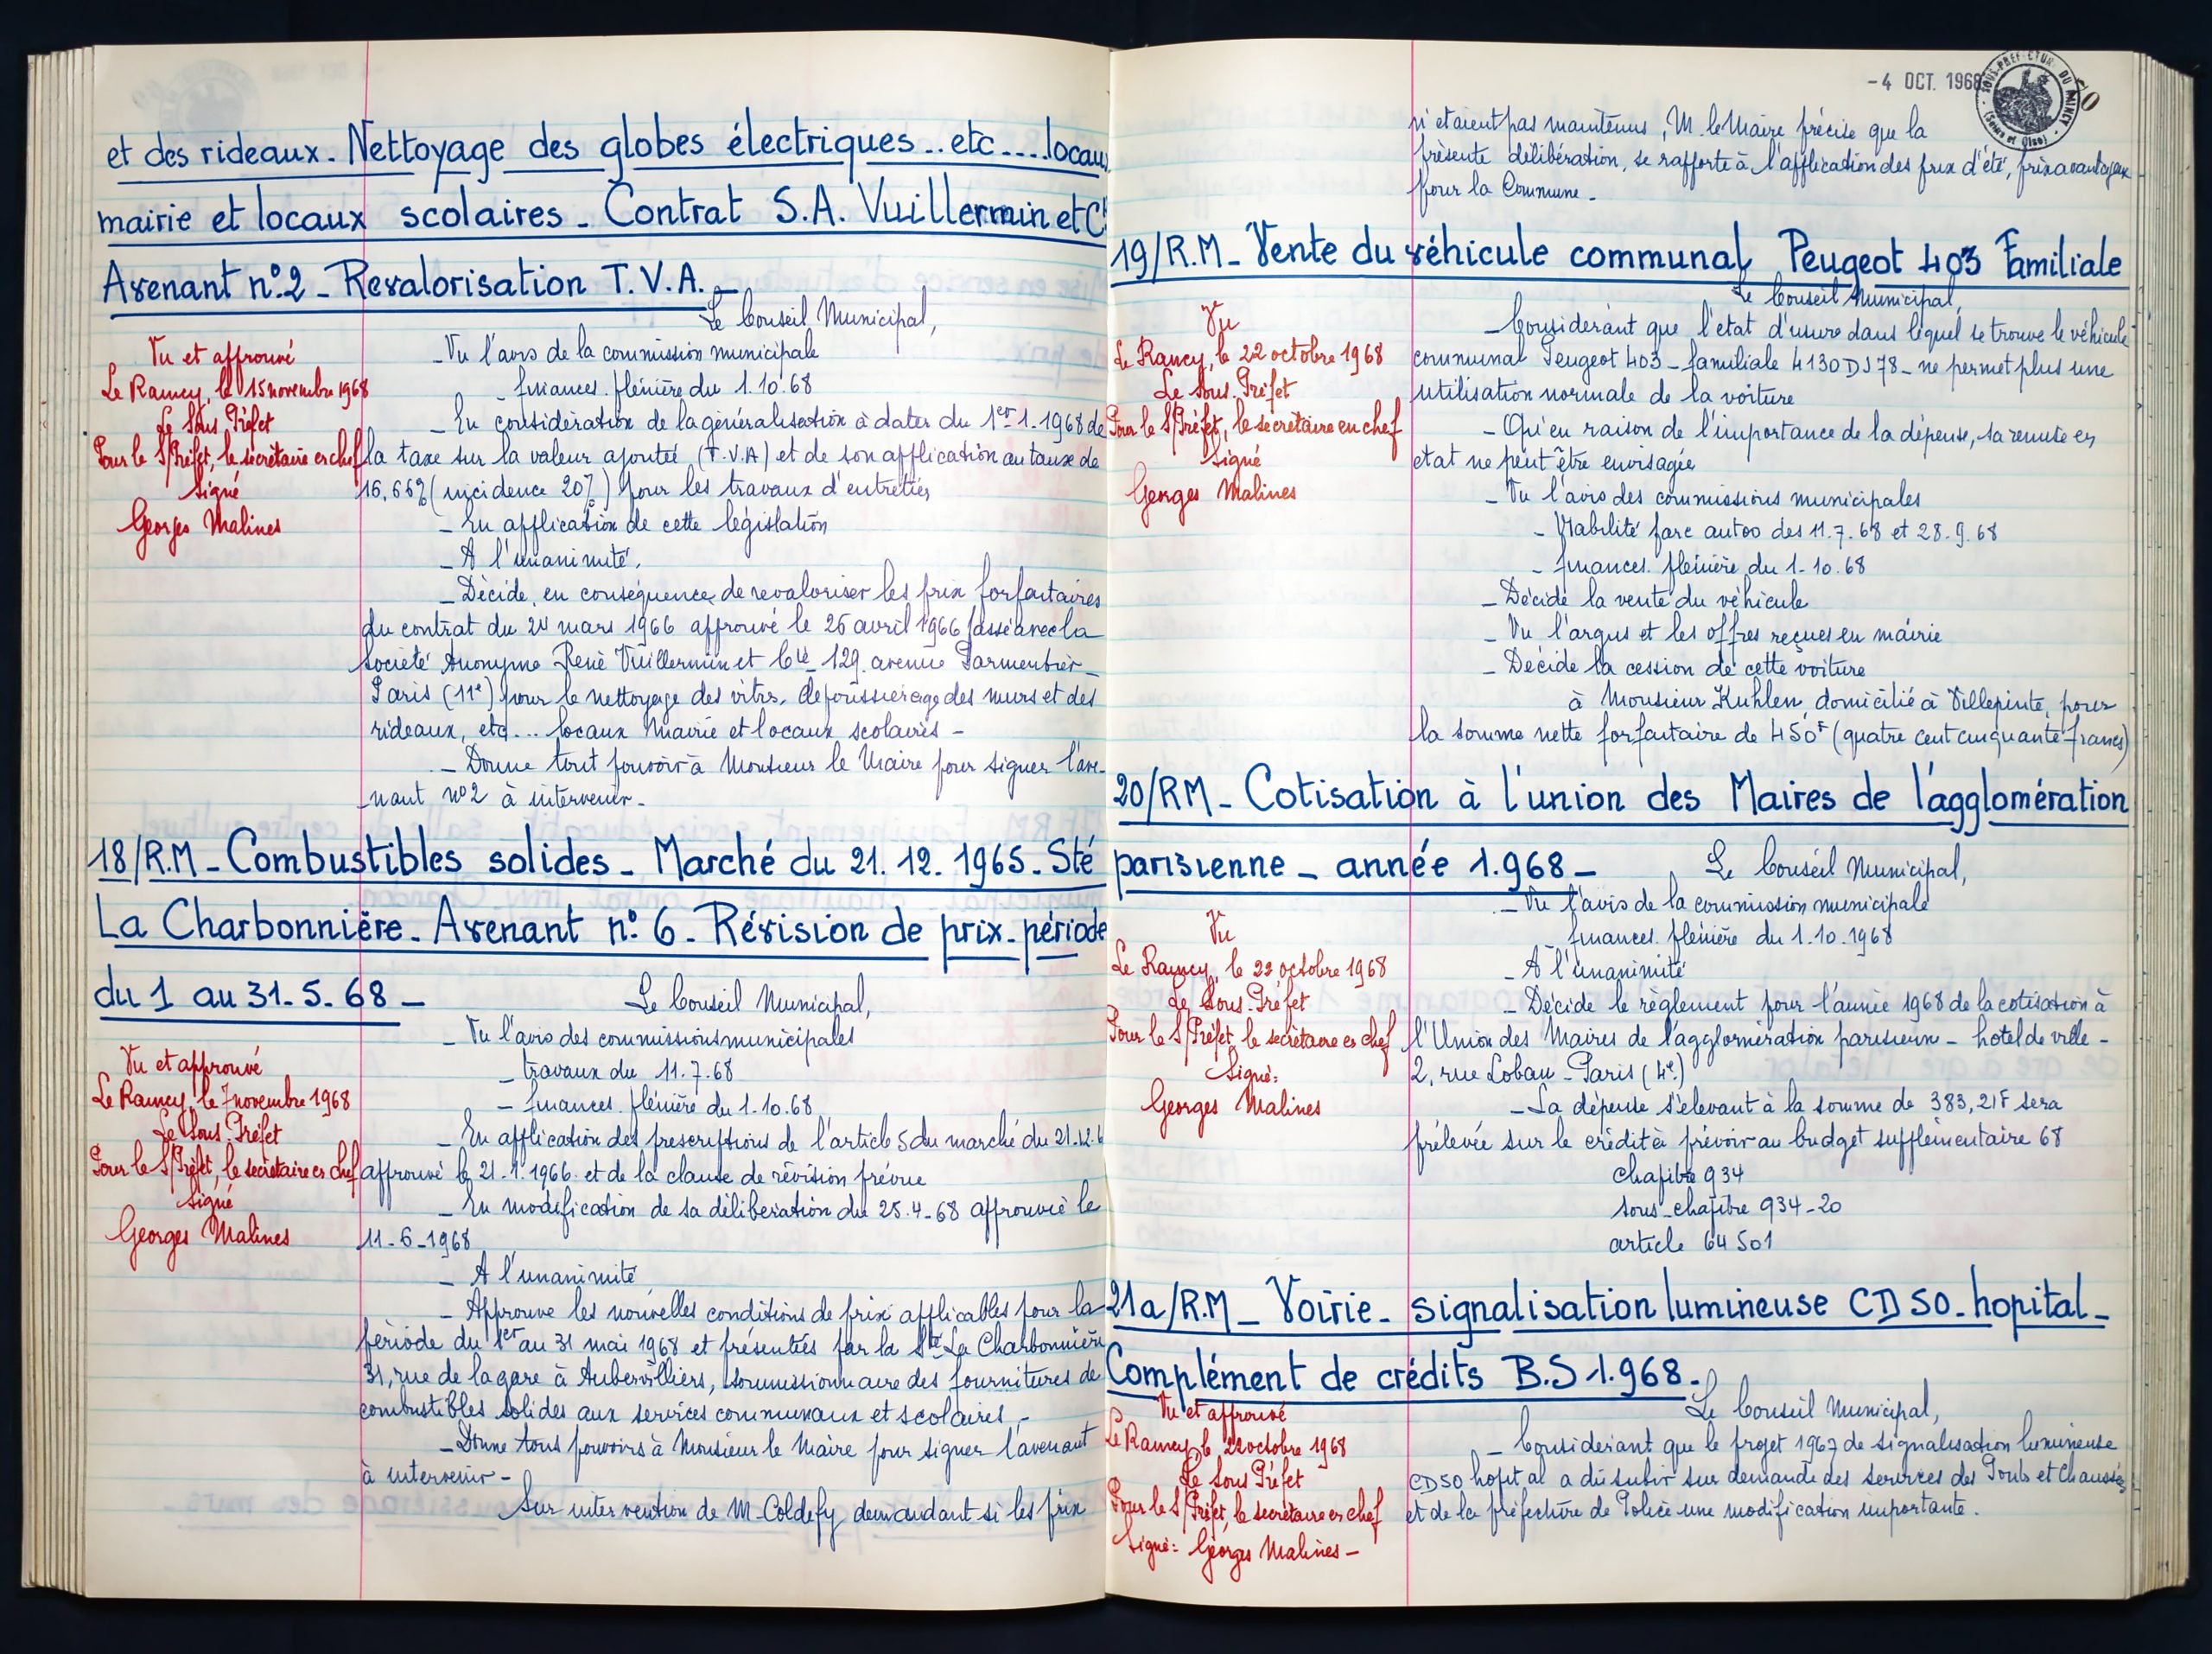 et des rideaux. Nettoyage des globes électriques.. etc....locaux
mairie et locaux scolaires - Contrat S.A. Vuillermin et Cie
Avenant n°.2 - Revalorisation T.V.A. -
Le Conseil Municipal,
Vu et approuvé
Le Raincy, le 15 novembre 1968
Le Sous-Préfet
Pour le S/Préfet, le secrétaire en chef
Signé
Georges Malines
- Vu l'avis de la commission municipale
- finances. plénière du 1.10.68
- En considération de la généralisation à dater du 1er-1-1968 de
la taxe sur la valeur ajoutée (T.V.A) et de son application au taux de
16,66% (incidence 20%) pour les travaux d'entretien
- En application de cette législation
- A l'unanimité,
- Décide, en conséquence, de revaloriser les prix forfaitaires
du contrat du 24 mars 1966 approuvé le 26 avril 1966 passé avec la
Société Anonyme René Vuillermin et Cie - 129 avenue Parmentier -
Paris (11e) pour le nettoyage des vitres, dépoussiérage des murs et des
rideaux, etc... locaux Mairie et locaux scolaires -
- Donne tout pouvoir à Monsieur le Maire pour signer l'ave-
nant n°2 à intervenir.
18/R.M - Combustibles solides - Marché du 21.12.1965 - Sté
La Charbonnière - Avenant n°. 6 - Révision de prix - période
du 1 au 31-5-68 -
Le Conseil Municipal,
Vu et approuvé
Le Raincy, le 7 novembre 1968
Le Sous-Préfet
Pour le S/Préfet, le secrétaire en chef
Signé
Georges Malines
- Vu l'avis des commissions municipales
- travaux du 11.7.68
- finances. plénière du 1.10.68
- En application des prescriptions de l'article 5 du marché du 21.12.6
approuvé le 21.1.1966 et de la clause de révision prévue
- En modification de sa délibération du 25.4-68 approuvée le
11-6-1968
- A l'unanimité
- Approuve les nouvelles conditions de prix applicables pour la
période du 1er au 31 mai 1968 et présentées par la Sté La Charbonnière
31, rue de la gare à Aubervilliers, soumissionnaire des fournitures de
combustibles solides aux services communaux et scolaires -
- Donne tous pouvoirs à Monsieur le Maire pour signer l'avenant
à intervenir -
Sur intervention de M. Coldefy demandant si les prix
- 4 OCT. 1968
SOUS-PRÉFECTURE DU RAINCY
(Seine et Oise)
n'étaient pas maintenus, M. le Maire précise que la
présente délibération, se rapporte à l'application des prix d'été, prix avantageux
pour la Commune -
19/R.M - Vente du véhicule communal Peugeot 403 Familiale
Le Conseil Municipal,
Vu
Le Raincy, le 22 octobre 1968
Le Sous-Préfet
Pour le S/Préfet, le secrétaire en chef
Signé
Georges Malines
- Considérant que l'état d'usure dans lequel se trouve le véhicule
communal Peugeot 403 - familiale 4130 DJ 78 - ne permet plus une
utilisation normale de la voiture
- Qu'en raison de l'importance de la dépense, sa remise en
état ne peut être envisagée
- Vu l'avis des commissions municipales
- Viabilité parc autos des 11.7.68 et 28.9.68
- finances. plénière du 1-10.68
- Décide la vente du véhicule
- Vu l'argus et les offres reçues en mairie
- Décide la cession de cette voiture
à Monsieur Kuhlen, domicilié à Villepinte, pour
la somme nette forfaitaire de 450F (quatre cent cinquante francs)
20/RM - Cotisation à l'union des Maires de l'agglomération
parisienne - année 1.968 -
Le Conseil Municipal,
Vu
Le Raincy, le 22 octobre 1968
Le Sous-Préfet
Pour le S/Préfet, le secrétaire en chef
Signé:
Georges Malines
- Vu l'avis de la commission municipale
finances. plénière du 1.10.1968
- A l'unanimité
- Décide le règlement pour l'année 1968 de la cotisation à
l'Union des Maires de l'agglomération parisienne - hotel de ville -
2, rue Lobau - Paris (4e)
- La dépense s'élevant à la somme de 383,21F sera
prélevée sur le crédit à prévoir au budget supplémentaire 68
chapitre 934
sous-chapitre 934-20
article 64501
21a/R.M - Voirie - signalisation lumineuse CD50 - hopital -
Complément de crédits B.S 1.968.
Le Conseil Municipal,
Vu et approuvé
Le Raincy, le 22 octobre 1968
Le Sous Préfet
Pour le S/Préfet, le secrétaire en chef
Signé: Georges Malines -
- Considérant que le projet 1967 de signalisation lumineuse
CD50 hopital a dû subir sur demande des services des Ponts et Chaussées
et de la préfecture de Police une modification importante.